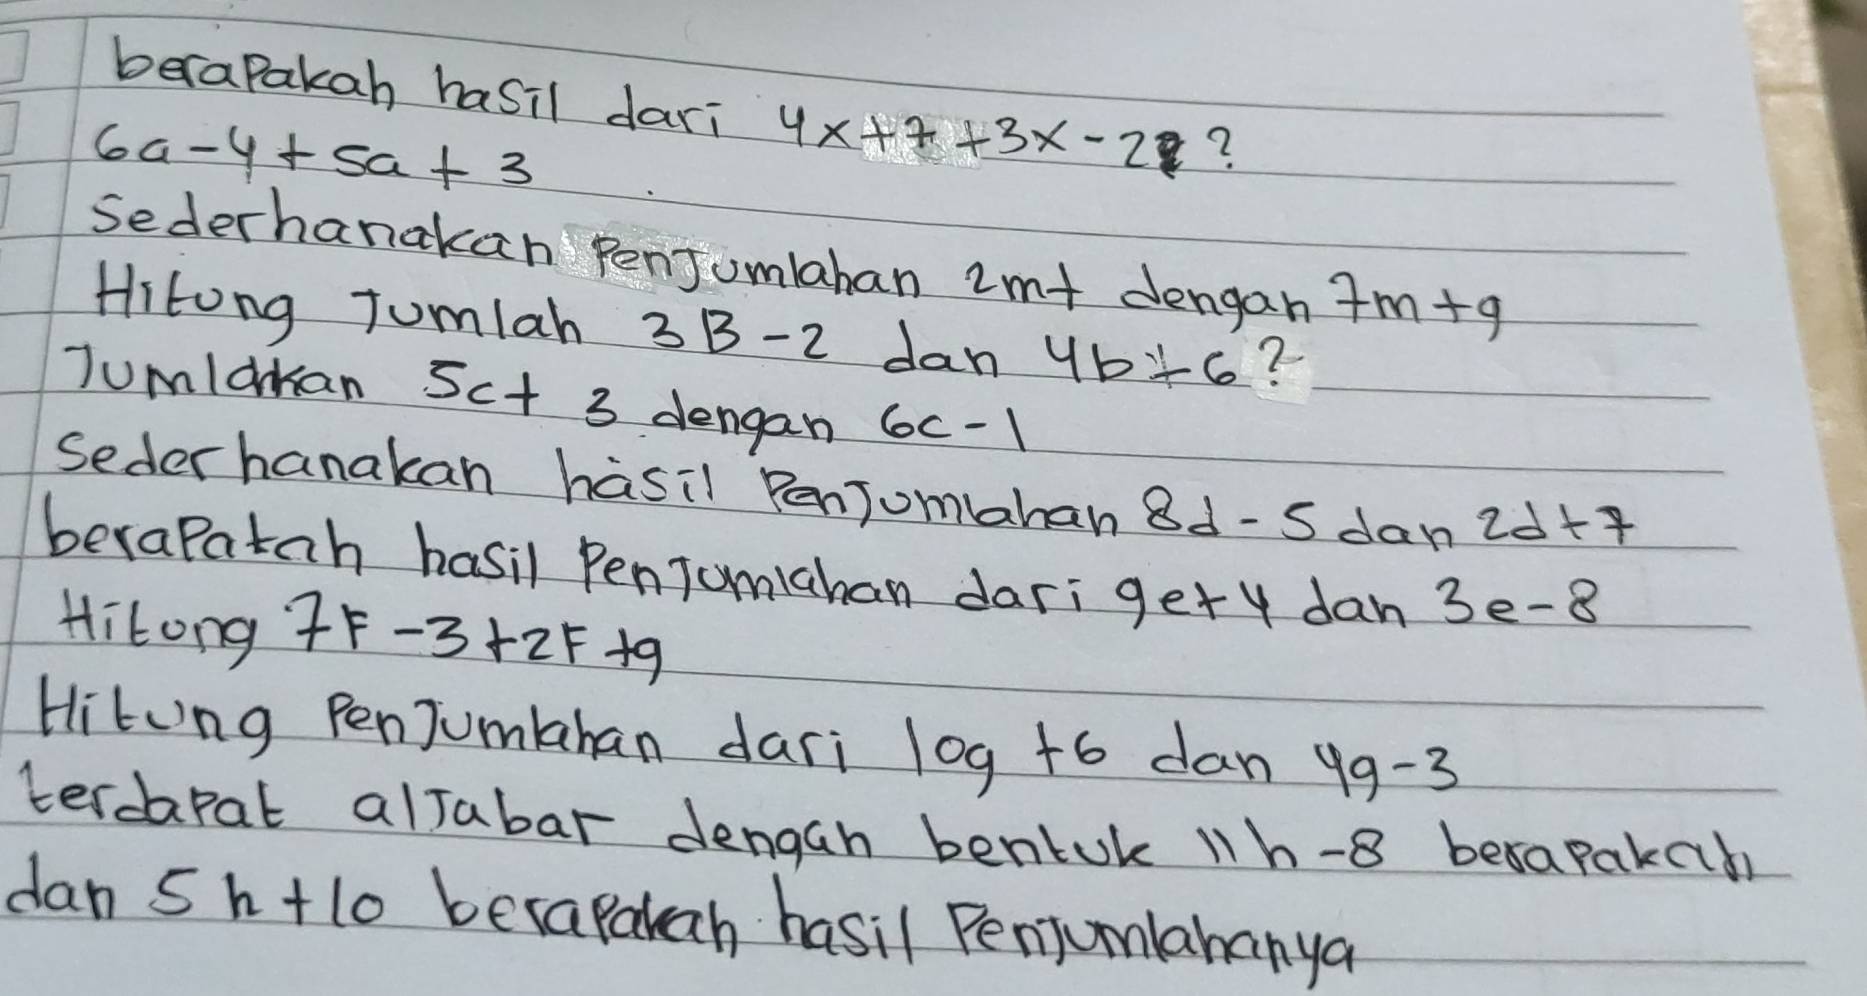 berapakah hasil dari 4x+7+3x-2?
6a-4+5a+3
Sederhanakan Penjumlahan 2m+ dengan 7m+9
Hitung Jumlah 3B-2 dan 4b+6?
Jumlahkan 5c+3 dengan 6c-1
Sederhanakan hasil Penjumlahan 8d-5 dan 2d+7
berapakah hasil Penjumlahan dari 9e+4 dan 3e-8
Hitung 7F-3+2F+9
Hitung Penjumlahan dari 10g+6 dan 4g-3
terdapat aljabar dengan bentuk 11h-8 berapakah
dan 5h+10 berapakah hasil Penjumlahanya